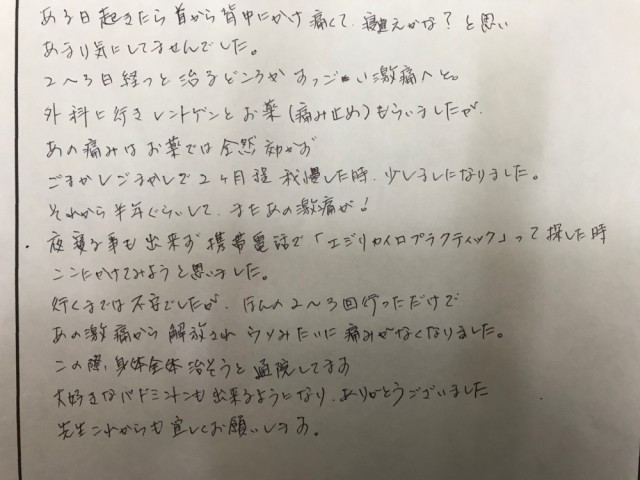 ある日起きたら首から背中にかけ痛くて、寝違えかな？と思い
あまり気にしてませんでした。
2〜3日経つと治るどころかすっごーい激痛へと。
外科に行きレントゲンとお薬(痛み止め)もらいましたが、
あの痛みはお薬では全然効かず
ごまかしごまかしで2ヶ月程我慢した時、少しましになりました。
それから半年ぐらいして、またあの激痛が！
夜寝る事も出来ず携帯電話で「エジリカイロプラクティック」って探した時
ここにかけてみようと思いました。
行くまでは不安でしたが、ほんの2〜3回行っただけで
あの激痛から解放されウソみたいに痛みがなくなりました。
この際、身体全体治そうと通院してます
大好きなバドミントンも出来るようになり、ありがとうございました
先生これからも宜しくお願いします。